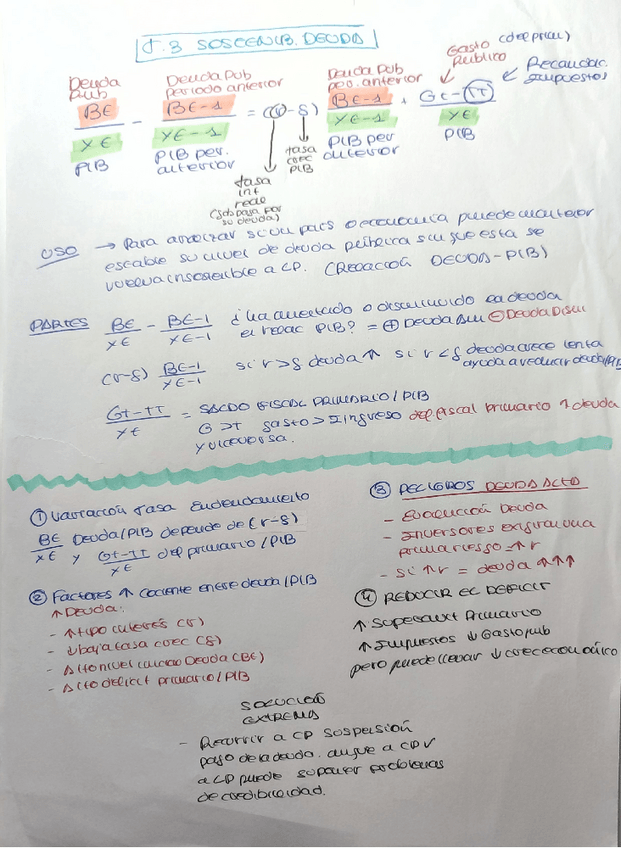 T.3 SOSTENIB. DEUDA
Deuda Pub
Deuda Pub periodo anterior
Deuda Pub per. anterior
Gasto Público (def prim)
Recaudac. Impuestos
Bt / Yt - Bt-1 / Yt-1 = (r-g) Bt-1 / Yt-1 + Gt-Tt / Yt
PIB
PIB per. anterior
PIB per anterior
PIB
tasa int real
(solo pasa por su deuda)
tasa crec PIB
USO → Para analizar si un país o economía puede mantener
estable su nivel de deuda pública sin que esta se
vuelva insostenible a LP. (RELACIÓN DEUDA-PIB)
PARTES Bt / Yt - Bt-1 / Yt-1 ¿ha aumentado o disminuido la deuda
el relac PIB? = + Deuda Aum - Deuda Dism
(r-g) Bt-1 / Yt-1 si r>g deuda↑ si r<g deuda crece lenta
ayuda a reducir deuda/PIB
Gt-Tt / Yt = SALDO FISCAL PRIMARIO/PIB
G>T gasto>Ingreso def fiscal primario ↑ deuda
y viceversa.
① Variación Tasa Endeudamiento
Bt / Yt Deuda/PIB depende de (r-g)
y Gt-Tt / Yt def primario/PIB
② Factores ↑ cociente entre deuda/PIB
↑ Deuda:
- ↑ tipo interés (r)
- ↓ baja tasa crec (g)
- Alto nivel inicial Deuda (Bt)
- Alto deficit primario/PIB
③ PELIGROS DEUDA ALTO
- Evaluación Deuda
- Inversores exigirán una
prima riesgo ↑r
- Si ↑r = deuda ↑↑↑
④ REDUCIR EL DEFICIT
↑ Superávit Primario
↑ Impuestos ↓ Gasto pub
pero puede llevar ↓ crec económico
SOLUCIÓN
EXTREMA
- Recurrir a CP suspensión
pago de la deuda. aunque a CP ✓
a LP puede suponer problemas
de credibilidad.